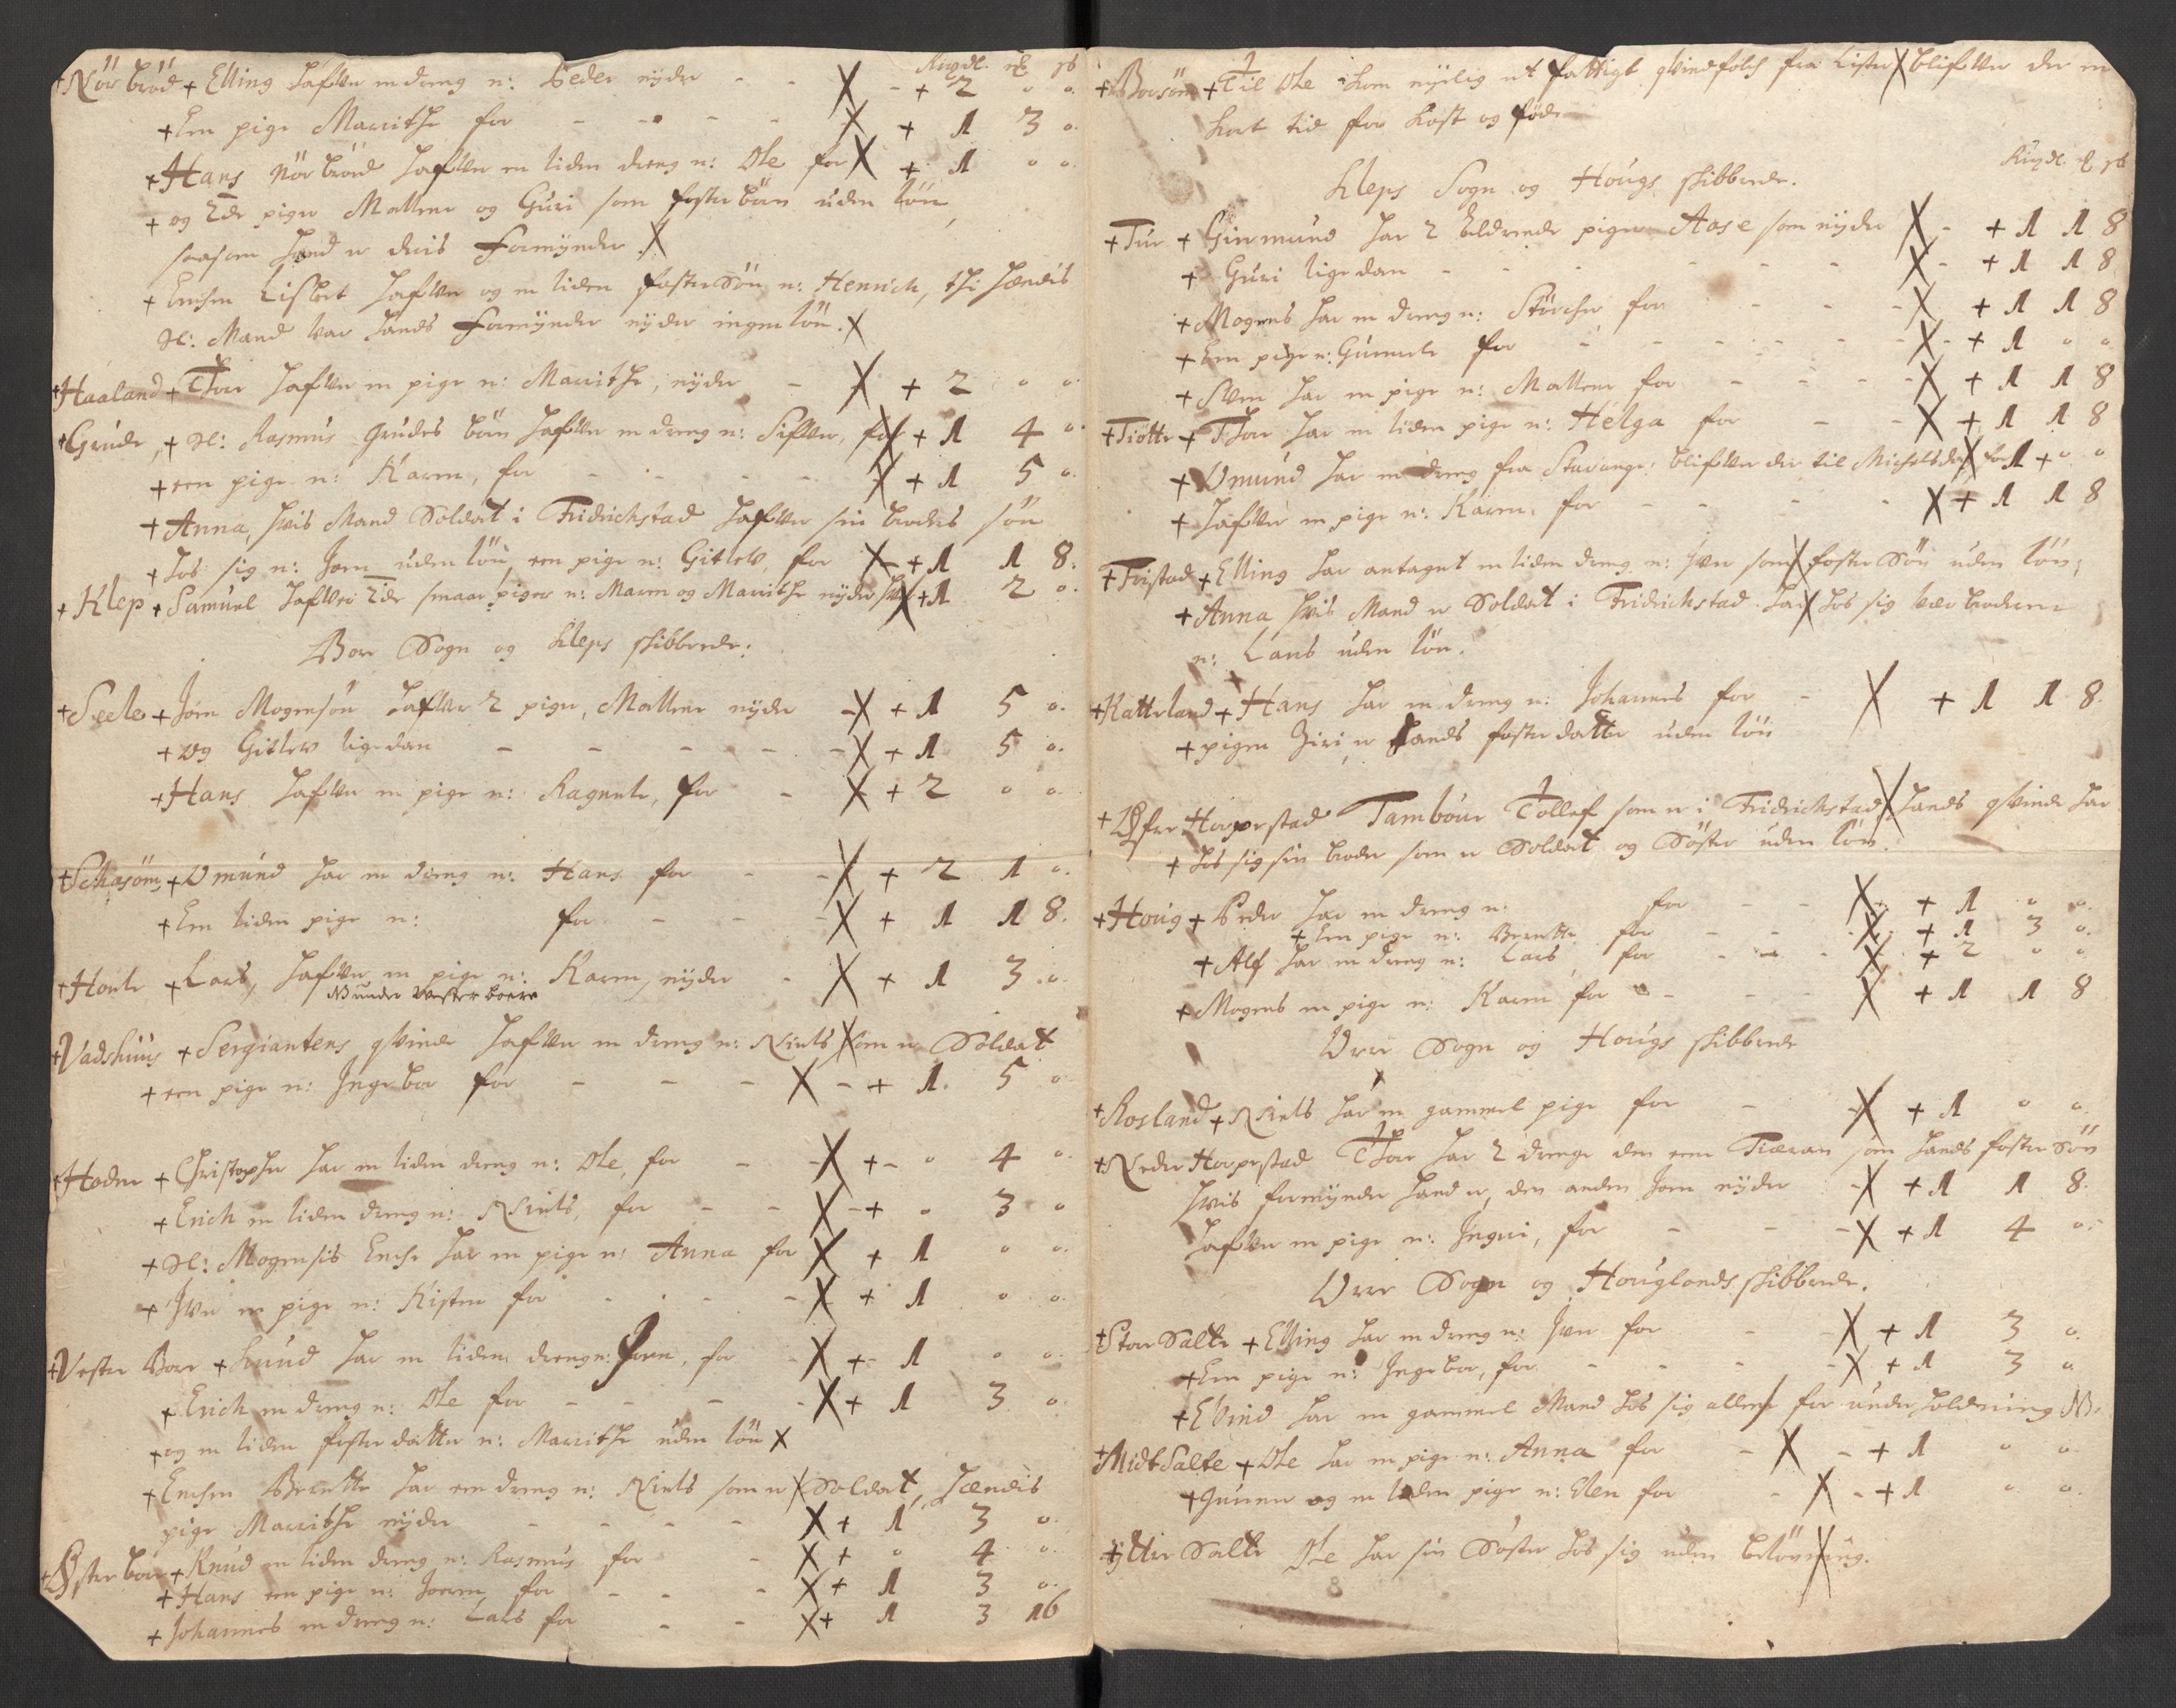 Rixdl. ℳ ß
+Nörbröd + Elling hafuer en dreng n: Peder nÿder - - X - + 2 0 0.
+Een pige Marrithe for - - - - X + 1 3 0.
+Hans Nörbröd hafuer en liden dreng n: Ole for X + 1 0 0.
+ og 2de piger Mallene og Guri som fosterbörn uden lön,
saasom hand er deris Formÿnder X
+ Enchen Lisbet hafuer og en liden fostersön n: Henrich, thi hendis
Sl: Mand var hands Formÿnder nÿder ingen lön. X
+Haaland + Thore hafuer en pige n: Marrithe, nÿder - X + 2 0 0
+Grude, + Sl: Rasmus Grudes börn hafuer en dreng n: Sifuer, for X + 1 4 0
+ een pige n: Karen, for - - - - X + 1 5 0.
+ Anna, huis Mand Soldat i Fridrichstad hafuer sin broders sön
+ hos sig n: Jorn uden lön, een pige n: Gitlew, for X + 1 1 8.
+ Klep + Samuel hafuer 2de smaa piger n: Maren og Marrithe nÿder X + 1 2 0.
Bore Sogn og Kleps skibbrede:
+Seele + Jörn Mogensön hafuer 2 piger, Mallene nÿder - X + 1 5 0.
+ og Gitlew ligedan - - - - - X + 1 5 0.
+Hans hafuer en pige n: Ragnele, for - X + 2 0 0.
+Schasöm + Omund har en dreng n: Hans for - - X + 2 1 0.
+Een liden pige n: for - - - X + 1 1 8.
+Hodne + Lars, hafuer en pige n: Karen, nÿder - X + 1 3 0.
NB under Wester boere
+Vadshuus + Sergiantens qvinde hafuer en dreng n: Niels X som er Soldat
+ een pige n: Ingebor for - - - X - + 1. 5 0
+Hodne + Christopher har en liden dreng n: Ole, for - - X + - 0 4 0
+ Erich en liden dreng n: Niels, for - - X - + 0 3 0
+ Sl: Mogensis Enche har en pige n: Anna for X + 1 0 0.
+ Iver en pige n: Kisten for - - - - X + 1 0 0.
+Vester Bore + Knud har en liden dreng n: Jorn, for - X + - 1 0 0.
+ Erich en dreng n: Ole for - - - - X + 1 3 0.
+ og en liden fosterdatter n: Marrithe uden lön X
+ Enchen Berette har een dreng n: Niels som er X Soldat, hendis
pige Marrithe nÿder - - - - X + 1 3 0.
+Øster bore + Knud en liden dreng n: Rasmus for - X + 0 4 0.
+ Hans een pige n: Joren, for - - - X + 1 3 0.
+ Johannes en dreng n: Lars for - - X + 1 3 16
+Borsöm + Til Ole kom nÿlig et fattigt qvindfolch fra Lister X blifuer der en
kort tid for kost og föde
Rixdl. ℳ ß
Kleps Sogn og Hougs skibbrede.
+Tu + Giermund har 2 Eldrende piger Aase som nÿder X - + 1 1 8
+ Guri ligedan - - - - - - X - + 1 1 8
+ Mogens har en dreng n: Störcher for - - X + 1 1 8
+ Een pige n: Gunnele for - - - - - X - + 1 0 0
+ Sven har en pige n: Mallene for - - - - X + 1 1 8
+Tiötte + Thore har en liden pige n: Helga for - - X + 1 1 8
+ Omund har en dreng fra Stavanger, blifuer der til Michelsdag X for 1 + 0 0
+ hafuer en pige n: Karen, for - - - - X + 1 1 8
+Fristad + Elling har antaget en liden dreng n: Iver som X foster Sön uden lön,
+ Anna huis Mand er Soldat i Fridrichstad har X hos sig hver broderen
n: Lars uden lön.
+Katteland + Hans har en dreng n: Johannes for - X + 1 1 8.
+ pigen Giri, er hands fosterdatter uden lön
+ Øfre Horpestad Tambour Tollef som er i Fridrichstad X hands qvinde har
+ hos sig sin broder som er Soldat og Söster uden lön.
+Houg + Peder har en dreng n: for - - X + 1 0 0.
+ Een pige n: Berette for - - - X + 1 3 0.
+ Alf har en dreng n: Lars, for - - - X + 2 0 0
+ Mogens en pige n: Karen for - - - X + 1 1 8
Orre Sogn og Hougs skibbrede
+Rosland + Niels har en gammel pige for - - X + 1 0 0.
+Neder Horpestad Thore har 2 drenge den eene Tiæran som hands foster Sön
huis formÿnder hand er, den anden Jorn nÿder - X + 1 1 8.
hafuer en pige n: Ingeri, for - - - X + 1 4 0.
Orre Sogn og Houglands skibbrede.
+Store Salte + Elling har en dreng n: Iver for - - X + 1 3 0.
+Een pige n: Ingebor, for - - - - X + 1 3 0
+ Eivind har en gammel Mand hos sig allene for underholdning NB.
+Midt Salte + Ole har en pige n: Anna for - X - + 1 0 0.
+ Gunner og en liden pige n: Elen for - X - + 1 0 0.
+ÿtter Salte Ole har sin Söster hos sig uden belönning. X